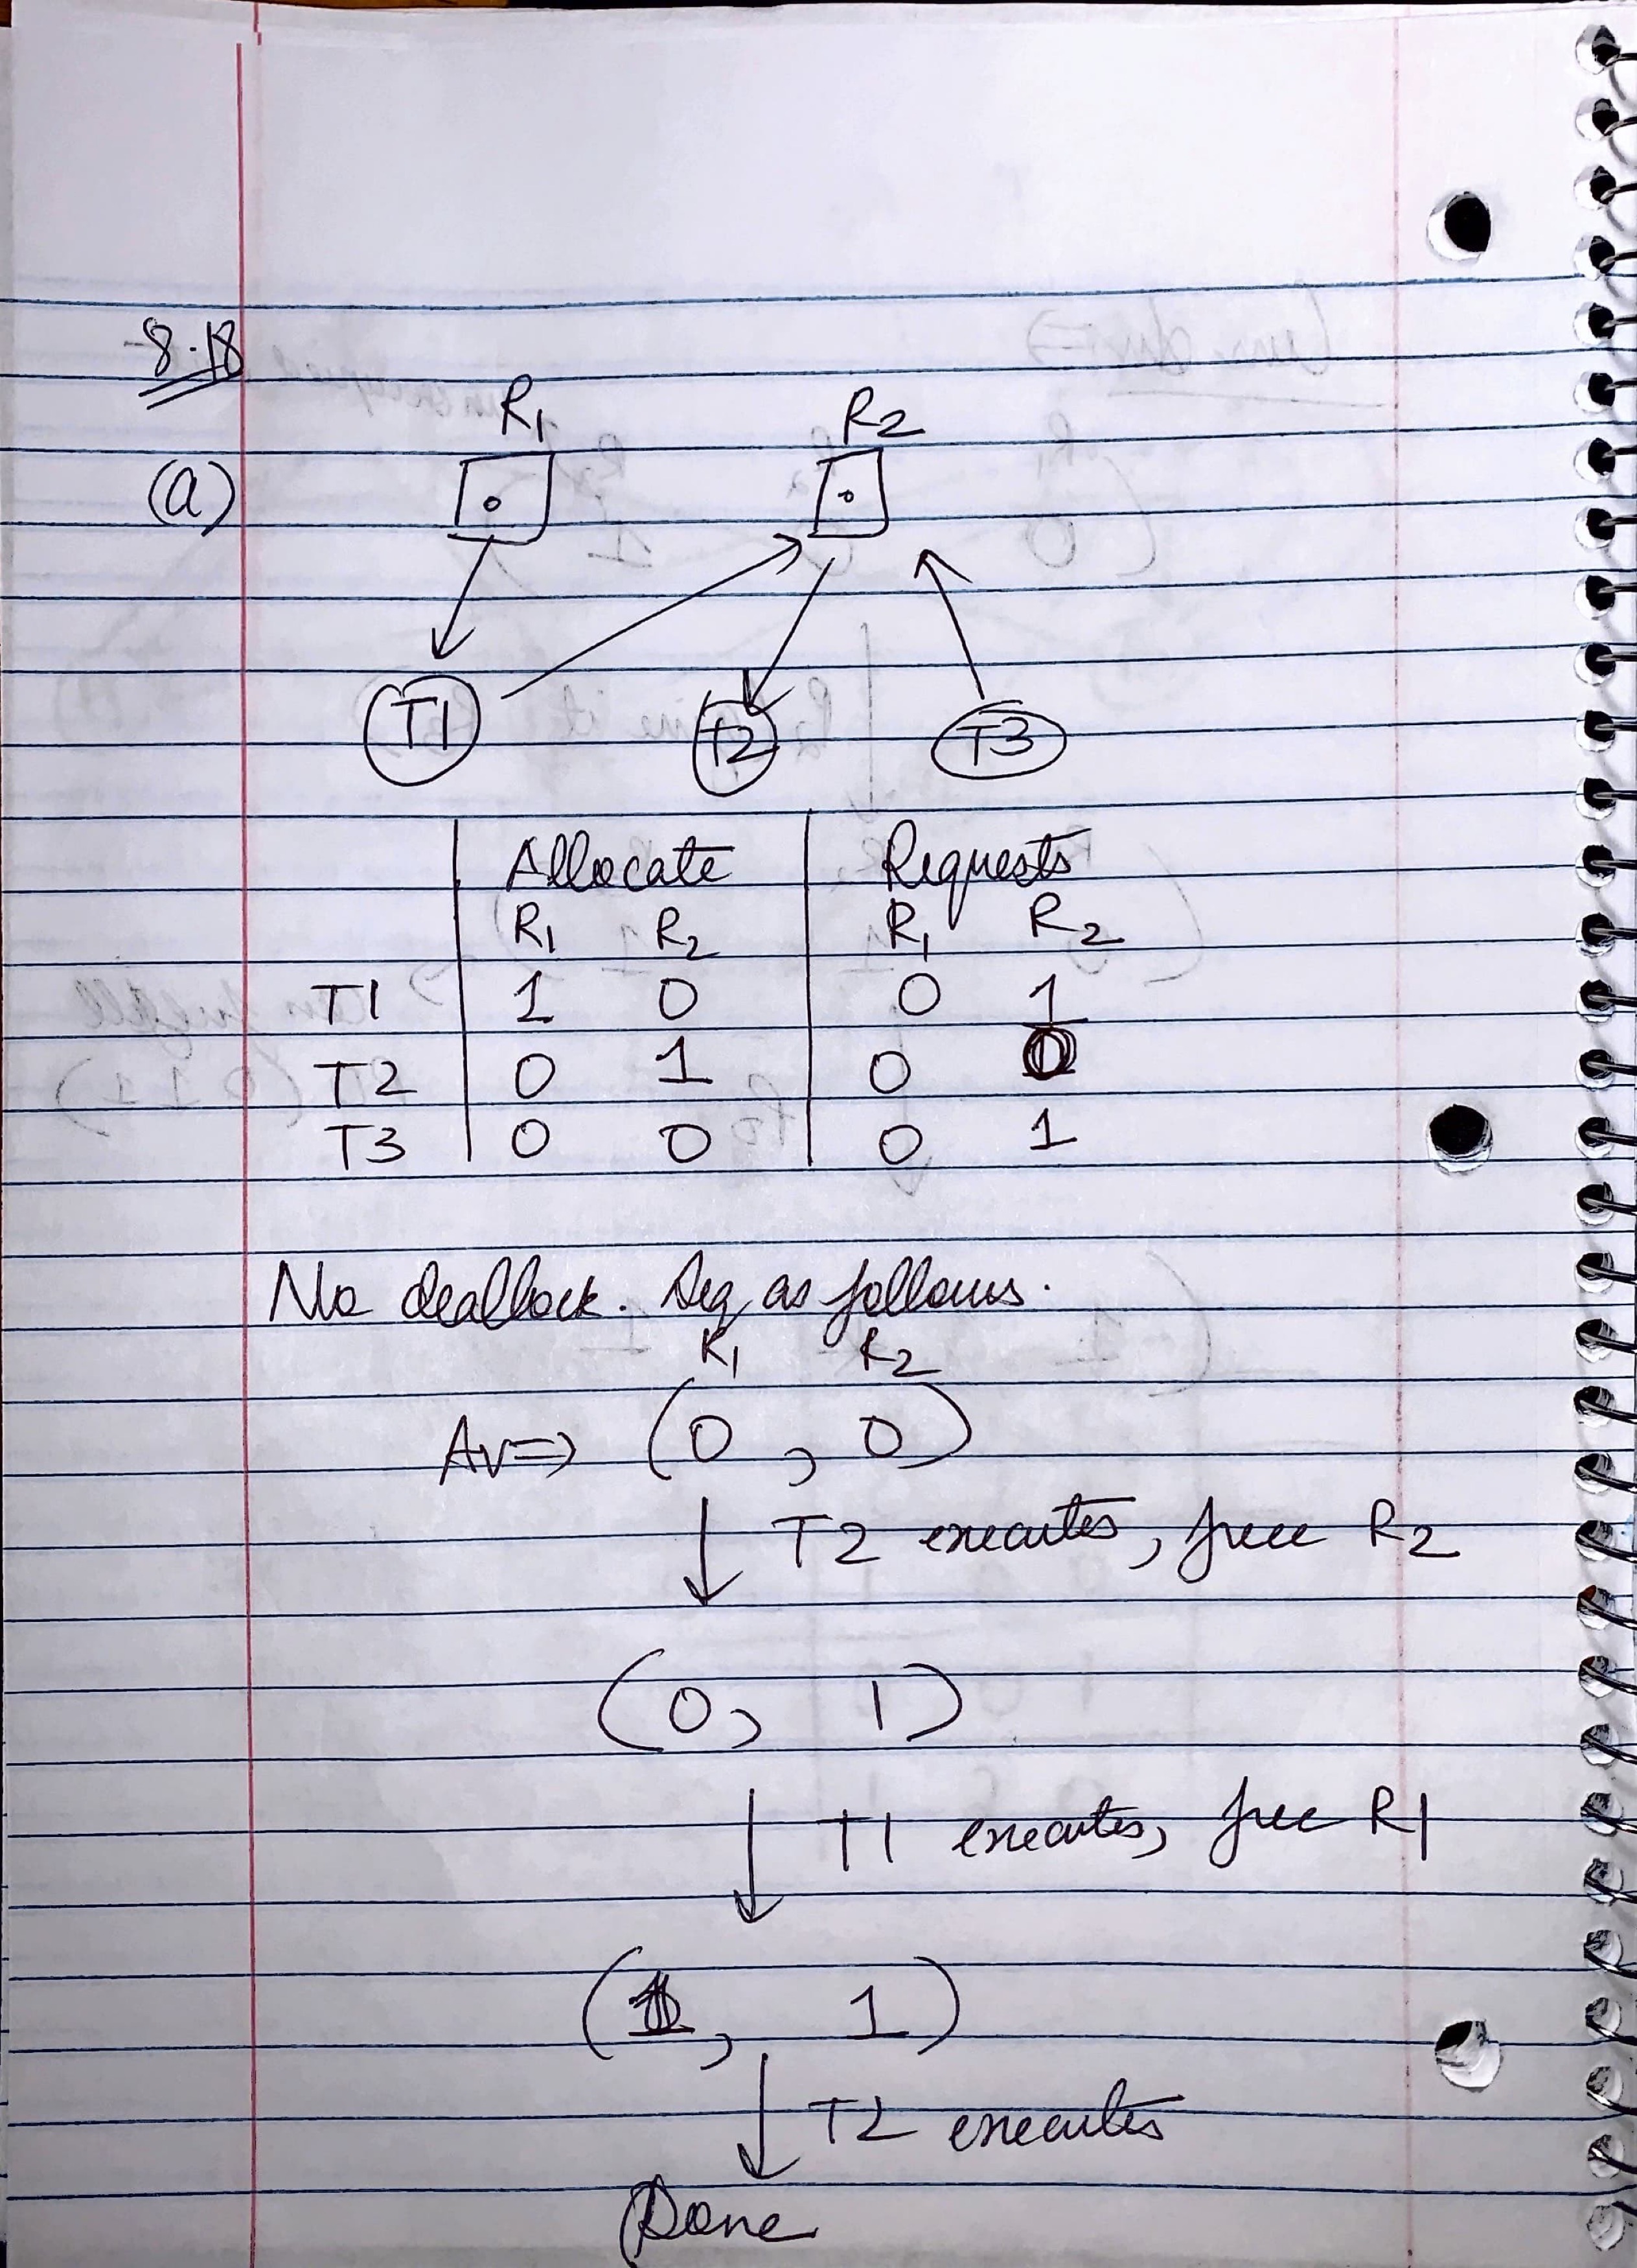 8.18
R1 R2
(a)
T1 T2 T3
Allocate Requests
R1 R2 R1 R2
T1 1 0 0 1
T2 0 1 0 0
T3 0 0 0 1
No deadlock. Seq as follows.
R1 R2
Av⇒ (0, 0)
↓ T2 executes, free R2
(0, 1)
↓ T1 executes, free R1
(1, 1)
↓ T2 executes
Done